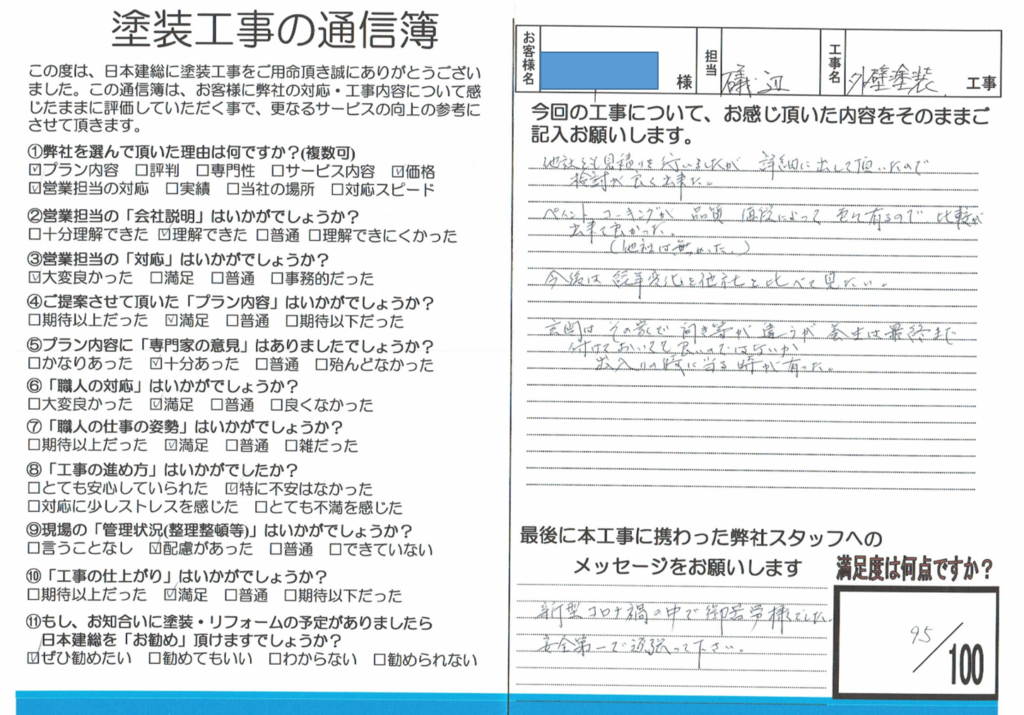 塗装工事の通信簿
この度は、日本建総に塗装工事をご用命頂き誠にありがとうござい
ました。この通信簿は、お客様に弊社の対応・工事内容について感
じたままに評価していただく事で、更なるサービスの向上の参考に
させて頂きます。
①弊社を選んで頂いた理由は何ですか?(複数可)
☑プラン内容 □評判 □専門性 □サービス内容 ☑価格
☑営業担当の対応 □実績 □当社の場所 □対応スピード
②営業担当の「会社説明」はいかがでしょうか?
□十分理解できた ☑理解できた □普通 □理解できにくかった
③営業担当の「対応」はいかがでしょうか?
☑大変良かった □満足 □普通 □事務的だった
④ご提案させて頂いた「プラン内容」はいかがでしょうか?
□期待以上だった ☑満足 □普通 □期待以下だった
⑤プラン内容に「専門家の意見」はありましたでしょうか?
□かなりあった ☑十分あった □普通 □殆んどなかった
⑥「職人の対応」はいかがでしょうか?
□大変良かった ☑満足 □普通 □良くなかった
⑦「職人の仕事の姿勢」はいかがでしょうか?
□期待以上だった ☑満足 □普通 □雑だった
⑧「工事の進め方」はいかがでしたか?
□とても安心していられた ☑特に不安はなかった
□対応に少しストレスを感じた □とても不満を感じた
⑨現場の「管理状況(整理整頓等)」はいかがでしょうか?
□言うことなし ☑配慮があった □普通 □できていない
⑩「工事の仕上がり」はいかがでしょうか?
□期待以上だった ☑満足 □普通 □期待以下だった
⑪もし、お知合いに塗装・リフォームの予定がありましたら
日本建総を「お勧め」頂けますでしょうか?
☑ぜひ勧めたい □勧めてもいい □わからない □勧められない
お客様名 様 担当 磯辺 工事名 外壁塗装 工事
今回の工事について、お感じ頂いた内容をそのままご
記入お願いします。
他社とも見積りを行いましたが 詳細に出して頂いたので
検討が良く出来た。
ペイント コーキングが 品質 値段によって 色々有るので 比較が
出来て良かった。
(他社は無かった。)
今後は 経年変化を他社と比べて見たい。
玄関は その家で 向き等が 違うが 養生は最終まで
付けておいても 良いのではないか
出入りの時に当る時が有った。
最後に本工事に携わった弊社スタッフへの
メッセージをお願いします
新型コロナ禍の中で御苦労様でした。
安全第一で頑張って下さい。
満足度は何点ですか?
95/100